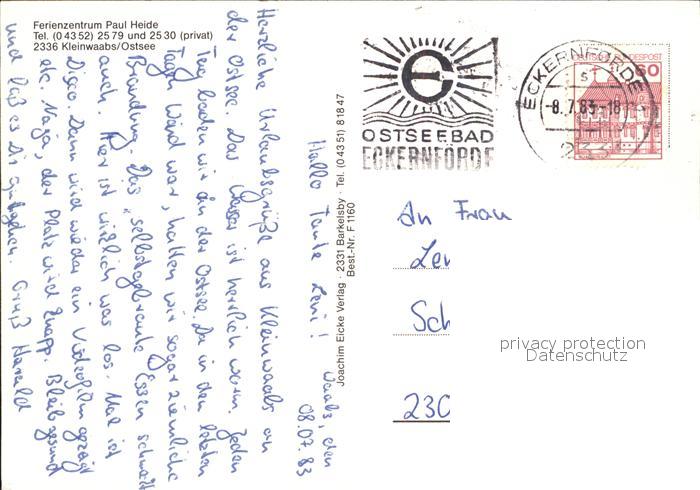 Ferienzentrum Paul Heide
Tel. (0 43 52) 25 79 und 25 30 (privat)
2336 Kleinwaabs/Ostsee
Waabs, den
08.07.83
Hallo Tante Leni!
Herzliche Urlaubsgrüße aus Kleinwaabs an
der Ostsee. Das Wasser ist herrlich warm. Jeden
Tag baden wir in der Ostsee. Da in den letzten
Tagen Wind war, hatten wir sogar ziemliche
Brandung. Das „selbstgebraute Essen schmeckt
auch. Hier ist wirklich was los. Mal ist
Disco. Dann wird wieder ein Videofilm gezeigt
etc. Naja, der Platz wird knapp. Bleib gesund
und laß es Dir gutgehen. Gruß Harald
Joachim Eicke Verlag · 2331 Barkelsby · Tel. (0 43 51) 8 18 47
Best.-Nr. F 1160
OSTSEEBAD
ECKERNFÖRDE
ECKERNFÖRDE
s
-8.7.83-18
233
BUNDESPOST
60
An Frau
Le
Sch
230
privacy protection
Datenschutz